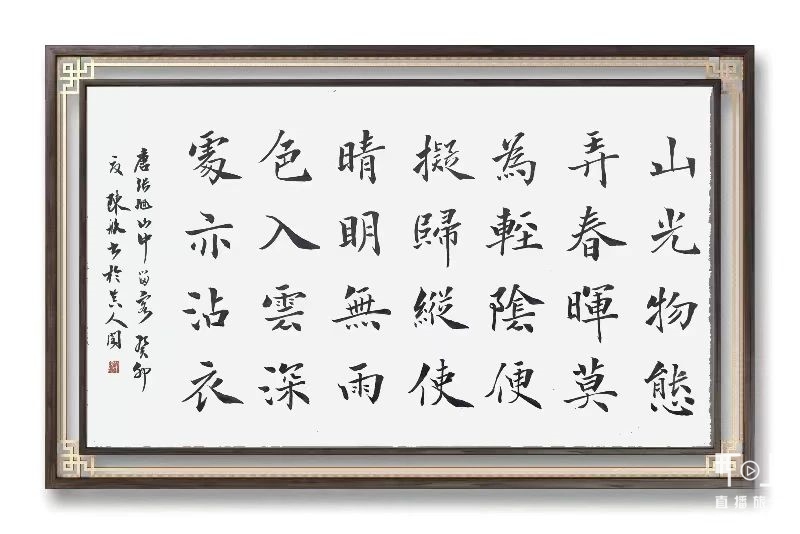 山光物態
弄春暉莫
為輕陰便
擬歸縱使
晴明無雨
色入雲深
處亦沾衣
唐張旭山中留客 癸卯
夏 陳 書於 人閣
直播旅